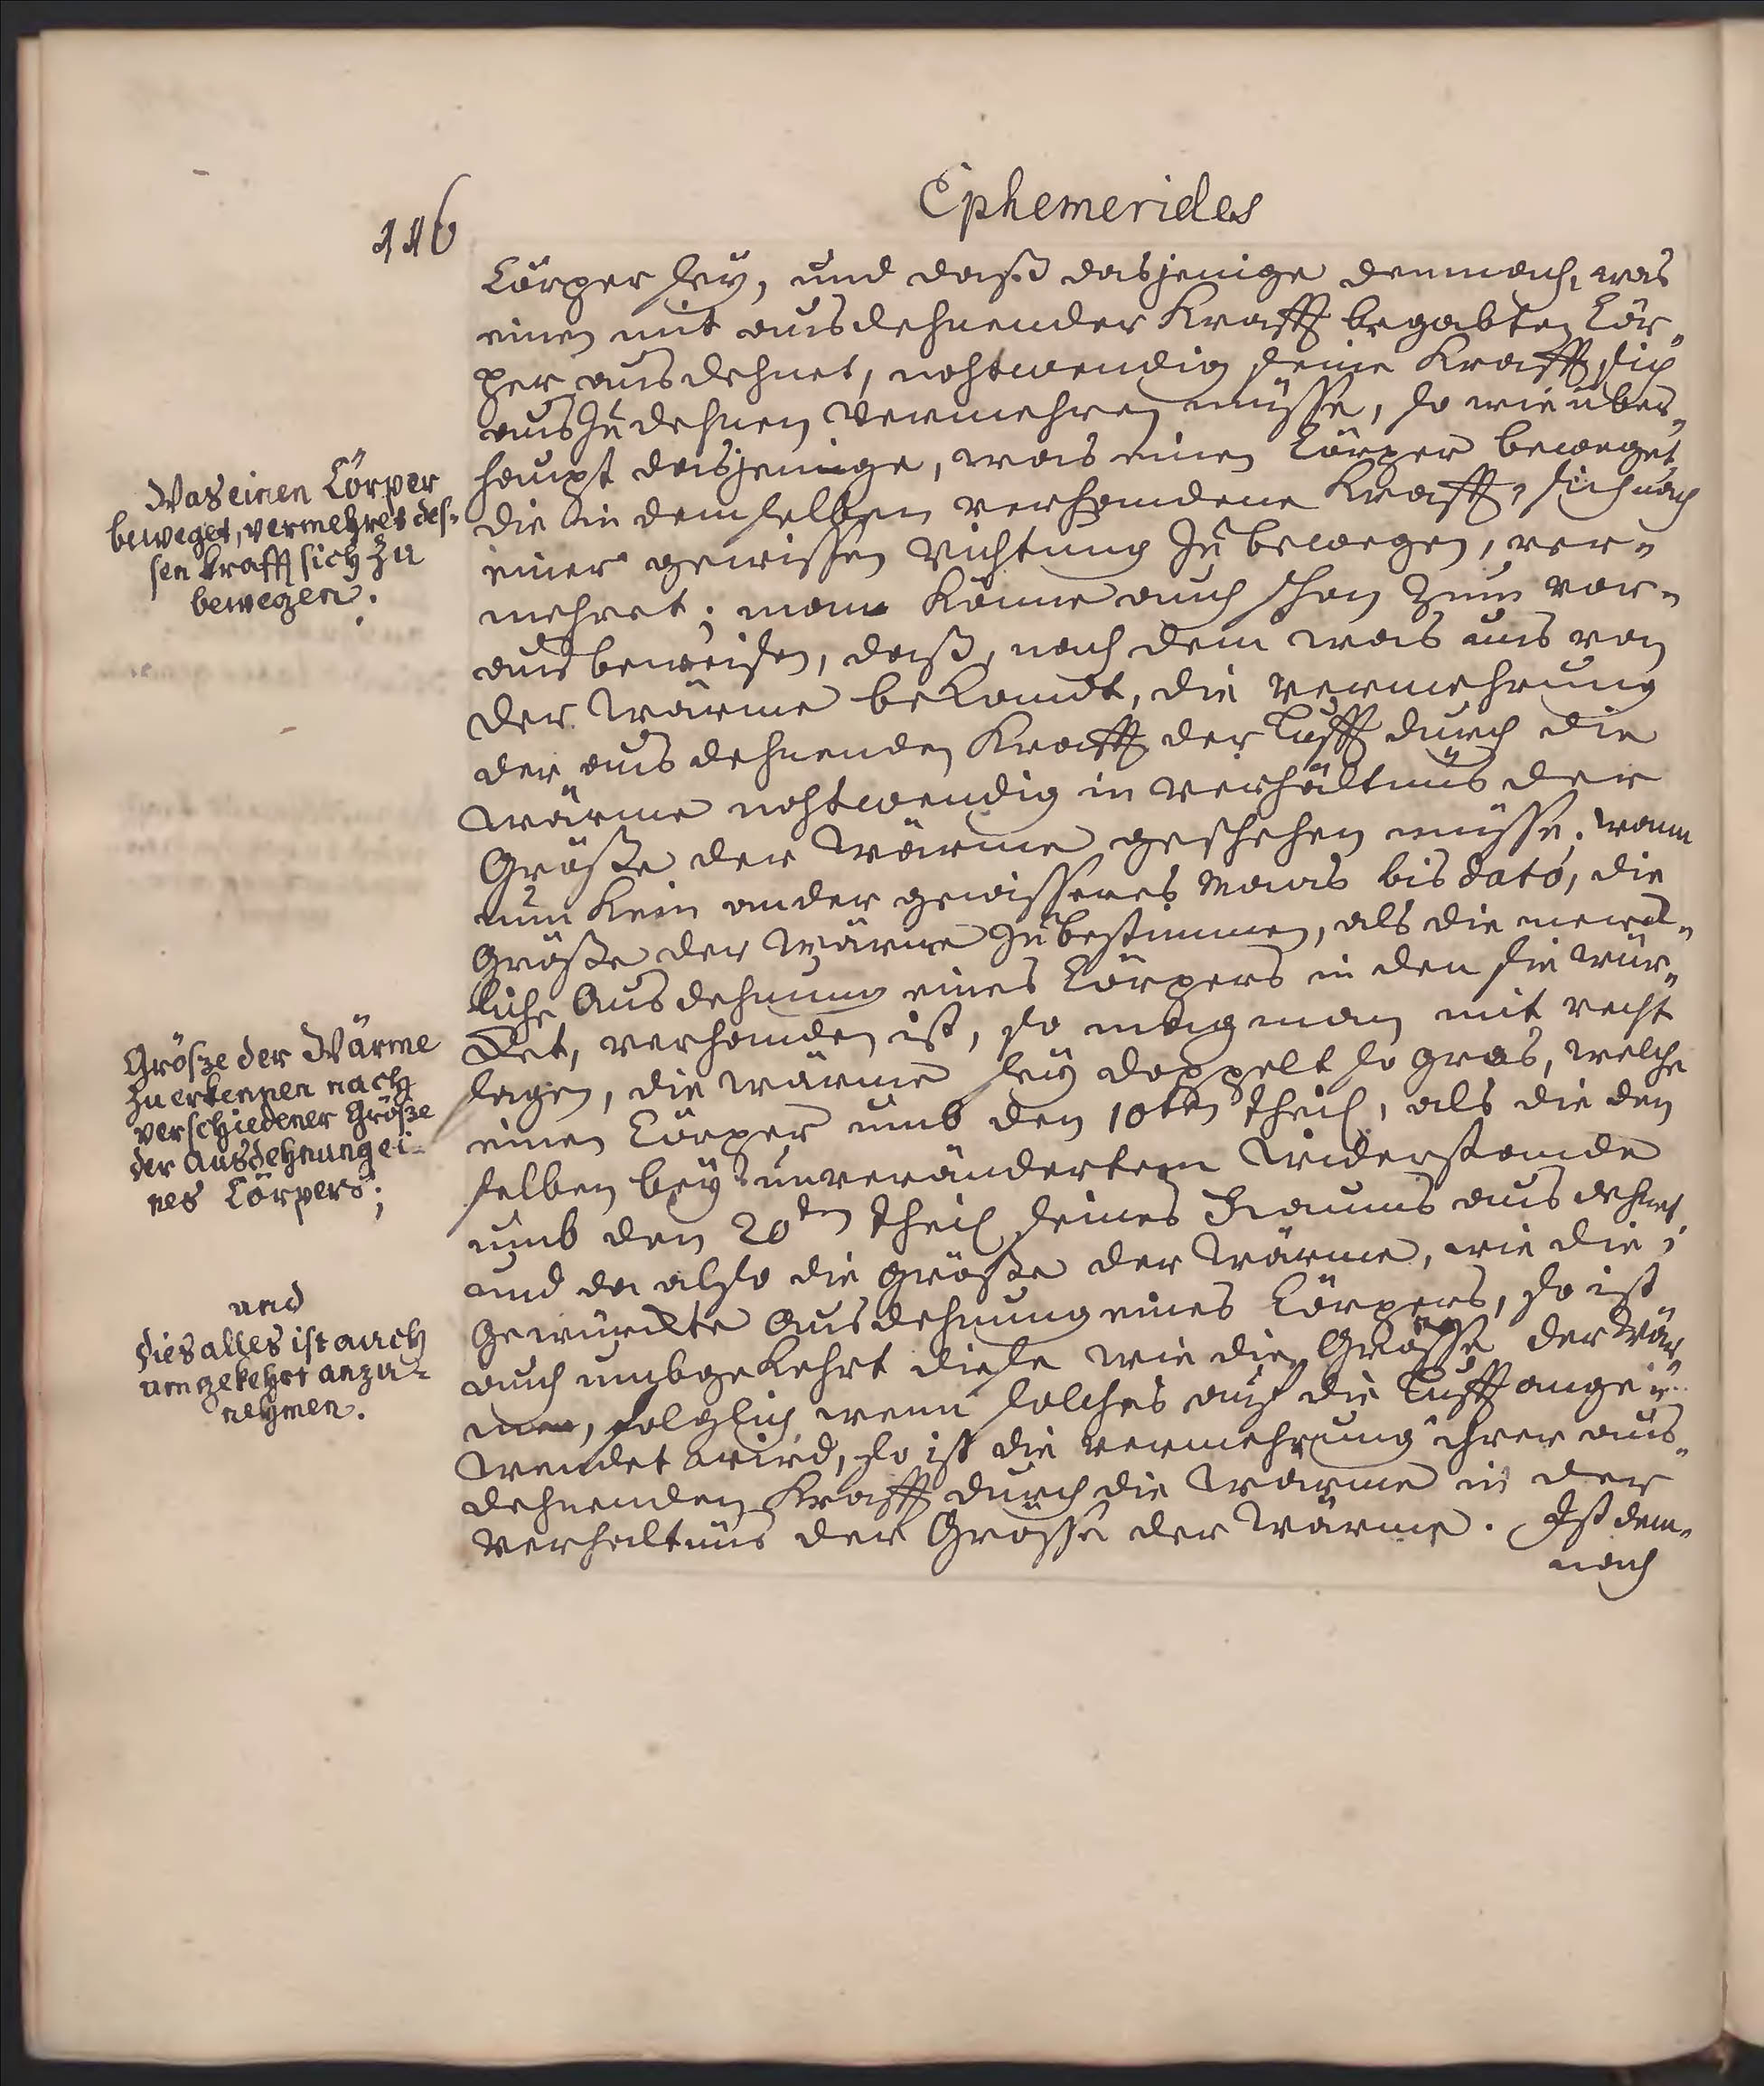 116
Ephemerides
Cörper sey, und daß dasjenige demnach, was
einen mit ausdehnender Krafft begabten Cör„
per ausdehnet, nohtwendig seine Krafft sich
auszudehnen vermehren müsse, so wie über„
haupt dasjenige, was einen Cörper beweget
die in demselben verhandene Krafft, sich nach
einer gewissen Richtung zu bewegen, ver„
mehret; man könne auch schon zum vor„
aus beweisen, daß, nach dem was uns von
der Wärme bekandt, die Vermehrung
der ausdehnenden Krafft der Lufft durch die
Wärme nohtwendig in verhältnüs der
Größe der Wärme geschehen müsse. wann
nun kein ander gewisseres Maas bis dato, die
Größe der Wärme zu bestimmen, als die merck„
liche Ausdehnung eines Cörpers in den sie wür„
cket, verhanden ist, so mag man mit recht
sagen, die Wärme sey doppelt so gros, welche
einen Cörper umb den 10ten theil, als die den
selben bey unverändertem Widerstande
umb den 20ten theil seines Raums ausdehnet,
und da also die größe der Wärme, wie die
gewürckte Ausdehnung eines Cörpers, so ist
auch umbgekehrt diese wie die Grösse der Wär„
men, folglich wenn solches auf die Lufft ange„
wendet wird, so ist die vermehrung ihrer aus„
dehnenden Krafft durch die Wärme in der
verhältnüs der Grösse der Wärme. Ist dem„
nach
Was einen Cörper
beweget, vermehret des„
sen krafft sich zu
bewegen.
Grösze der Wärme
zu erkennen nach
verschiedener Grösze
der Ausdehnung ei„
nes Cörpers;
und
dies alles ist auch
umgekehrt anzu„
nehmen.